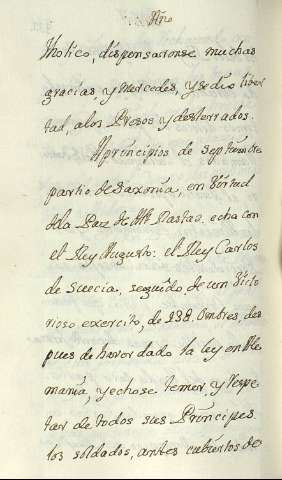 Año
tholico, dispensaronse muchas
gracias, y Mercedes, y se dio liber
tad, a los Presos y desterrados.
A principios de septiembre
partio de Saxonia, en Virtud
dela Paz de Alt Rastad, echa con
el Rey Augusto: el Rey Carlos
de Suecia, seguido de un Victo
rioso exercito, de 138. Ombres, des
pues de haver dado la ley en Ale
mania, y echose temer, y respe
tar de todos sus Principes.
los soldados, antes cubiertos de